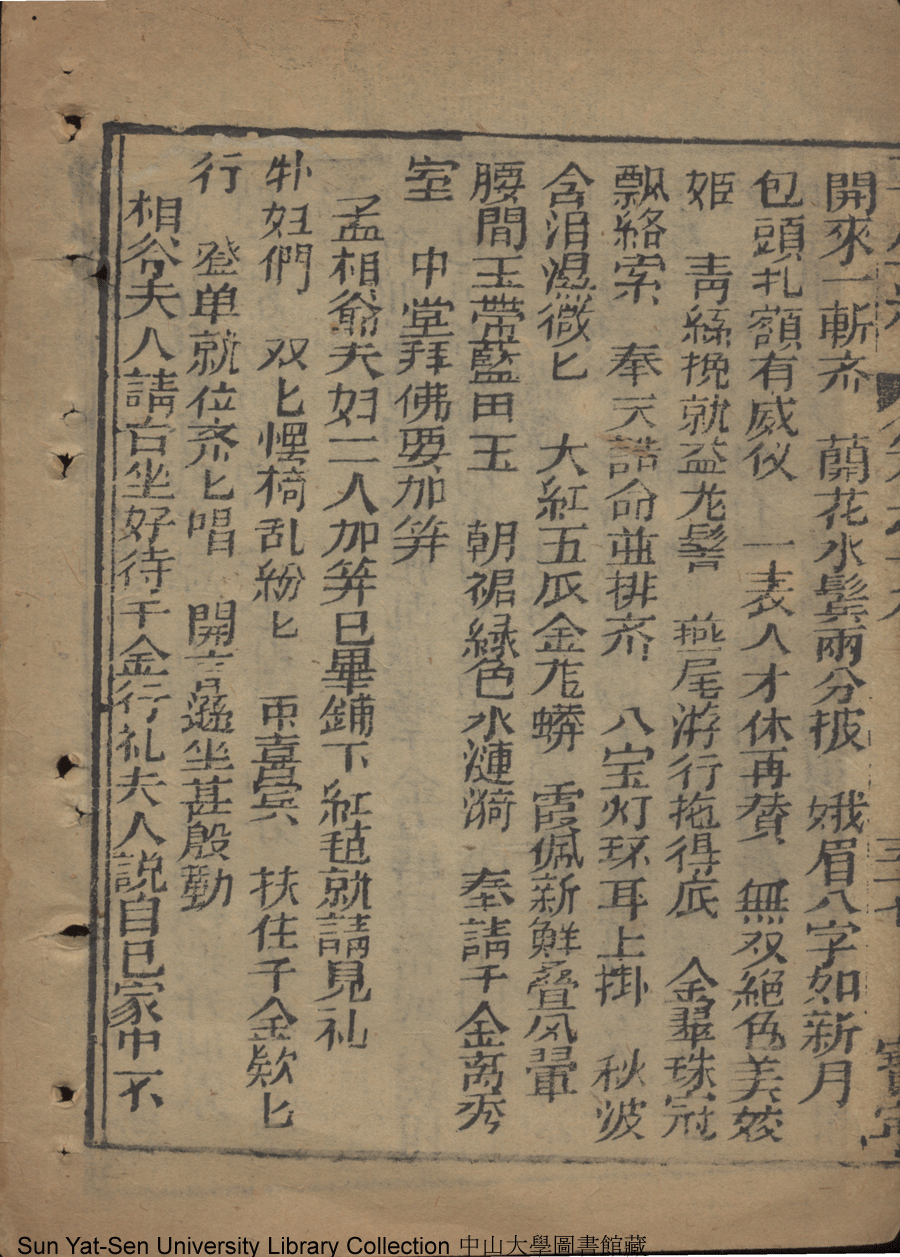 開來一斬齐　蘭花水鬂兩分披　娥眉八字如新月
包頭扎額有威仪　一表人才休再賛　無双絕色美姣
姬　青絲挽就盆龙髻　燕尾游行拖得底　金翠珠冠
飘絡索　奉天誥命並排齐　八宝灯环耳上掛　秋波
含泪濕微匕　大紅五爪金龙蟒　霞佩新鮮叠风翬
腰間玉帶藍田玉　朝裙緑色水漣漪　奉請千金离秀
室　中堂拜佛要加筓
孟相爺夫妇二人加筓已畢鋪下紅毡就請見礼
朴妇們　双匕惺椅乱紛匕　東喜宾　扶住千金欵匕
行　登单就位齐匕唱　開言遜坐甚殷勤
相爷夫人請台坐好待千金行礼夫人説自已家中不
三十七
寳
Sun Yat-Sen University Library Collection 中山大學圖書館藏